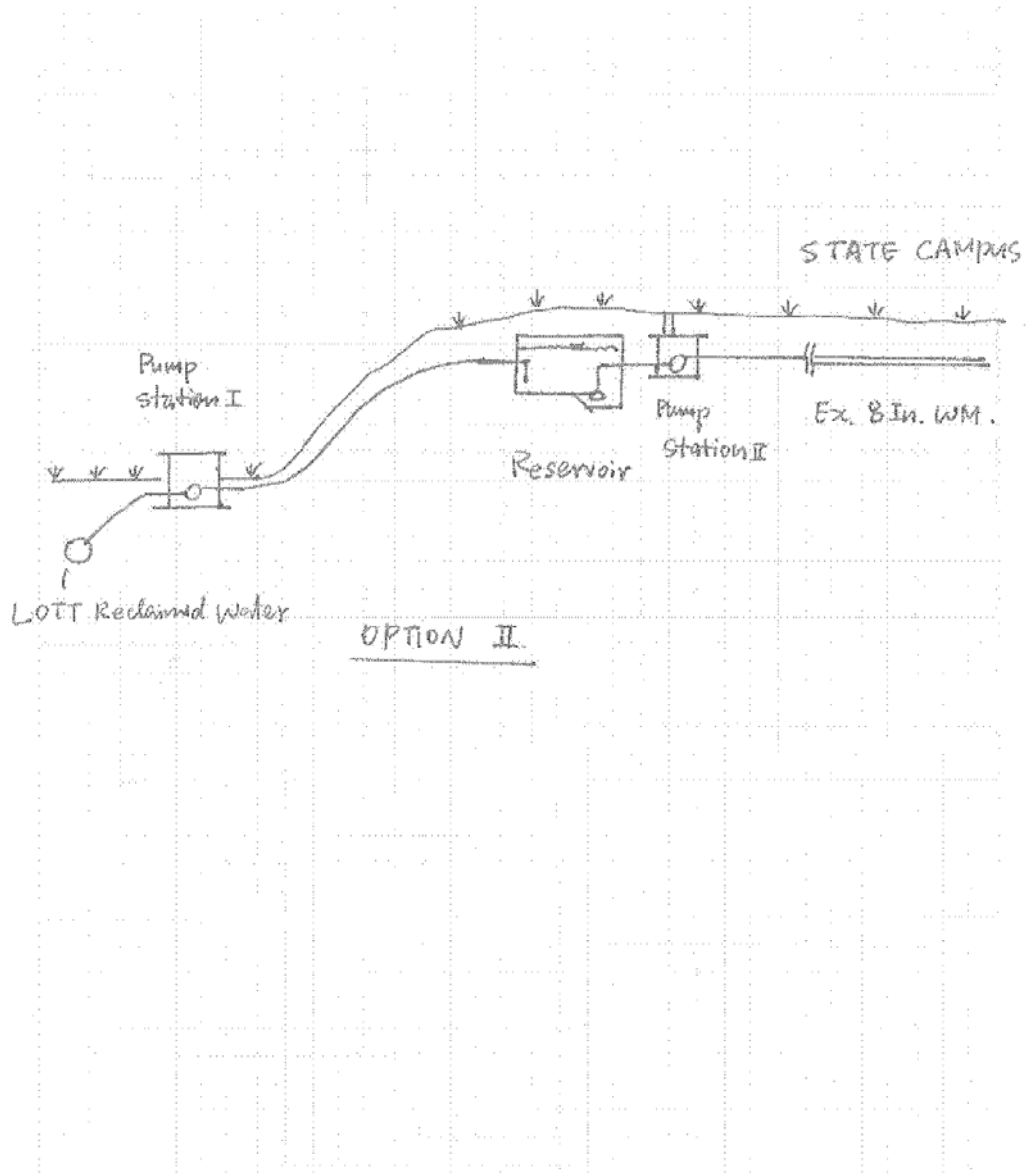 STATE CAMPUS
Pump
Station I
Pump
Station II
Ex. 8 In. WM.
Reservoir
LOTT Reclaimed Water
OPTION II.